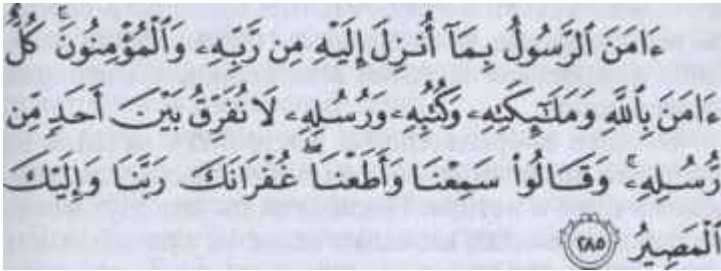 ءَامَنَ ٱلرَّسُولُ بِمَآ أُنزِلَ إِلَيْهِ مِن رَّبِّهِۦ وَٱلْمُؤْمِنُونَ ۚ كُلٌّ
ءَامَنَ بِٱللَّهِ وَمَلَـٰٓئِكَتِهِۦ وَكُتُبِهِۦ وَرُسُلِهِۦ لَا نُفَرِّقُ بَيْنَ أَحَدٍ مِّن
رُّسُلِهِۦ ۚ وَقَالُوا۟ سَمِعْنَا وَأَطَعْنَا ۖ غُفْرَانَكَ رَبَّنَا وَإِلَيْكَ
ٱلْمَصِيرُ ٢٨٥